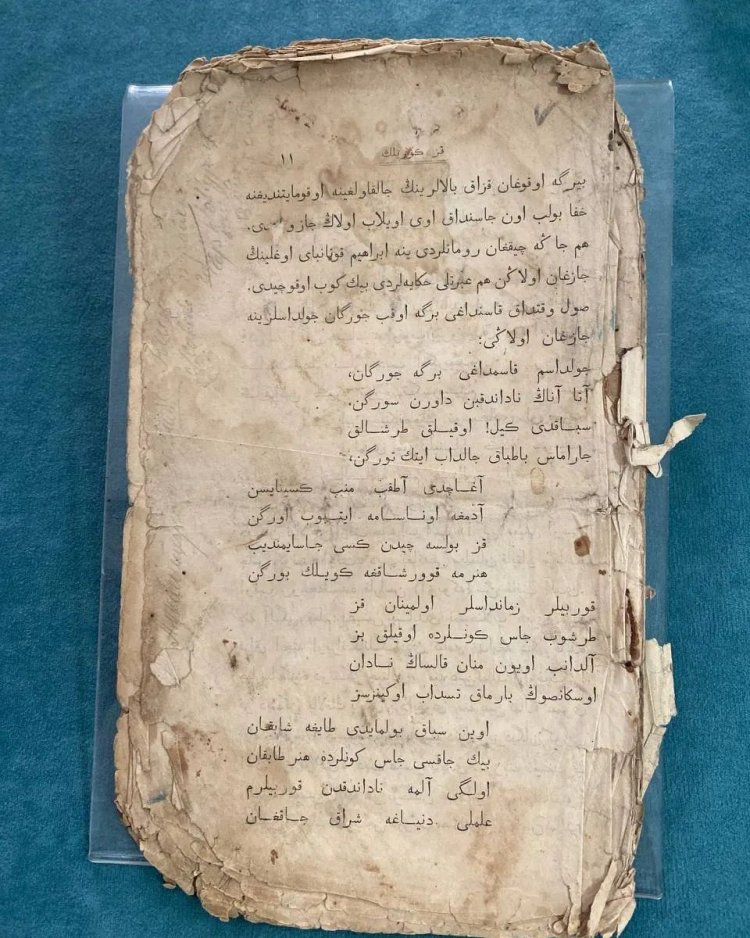 قز كورىلك ١١
بيرگه اوقوغان قزاق بالالرينڭ جالقاولغينه اوقومايتنديغنه
خفا بولب اون جاسنداق اوى اويلاب اولاڭ جازو دى.
هم جاڭه چيققان رومانلردى ينه ابراهيم قونانباى اوغلينڭ
جازغان اولاڭن هم عبرتلى حكايه‌لردى بيك كوب اوقوچيدى.
صول وقتداق قاسنداغى برگه اوقب جورگان جولداسلرينه
جازغان اولاڭى:
جولداسم قاسمداغى برگه جورگان،
آتا آناڭ نادانلقبن داورن سورگن.
سباقدى كيل! اوقيلق طرشالق
جاراماس باطباق جالداب ايتك تورگن،
آغاچدى آطقب منب كسينايسن
آدمغه اوناسامه ايتيوب اورگن
قز بولسه چيدن كسى جاسايمنديب
هنرمه قوورشاقغه كويلك بورگن
قوربيلر زمانداسلر اولمينان قز
طرشوب جاس كونلرده اوقيلق بز
آلدانب اويون منان قالساڭ نادان
اوسكانصوڭ بارماق تسداب اوكينرسز
اوين سباق بولمايدى طايغه شابقان
بيك جاقسى جاس كونلرده هنر طابقان
اولگى آلمه ناداندقدن قوربيلرم
علملى دنياغه شراق جاقغان